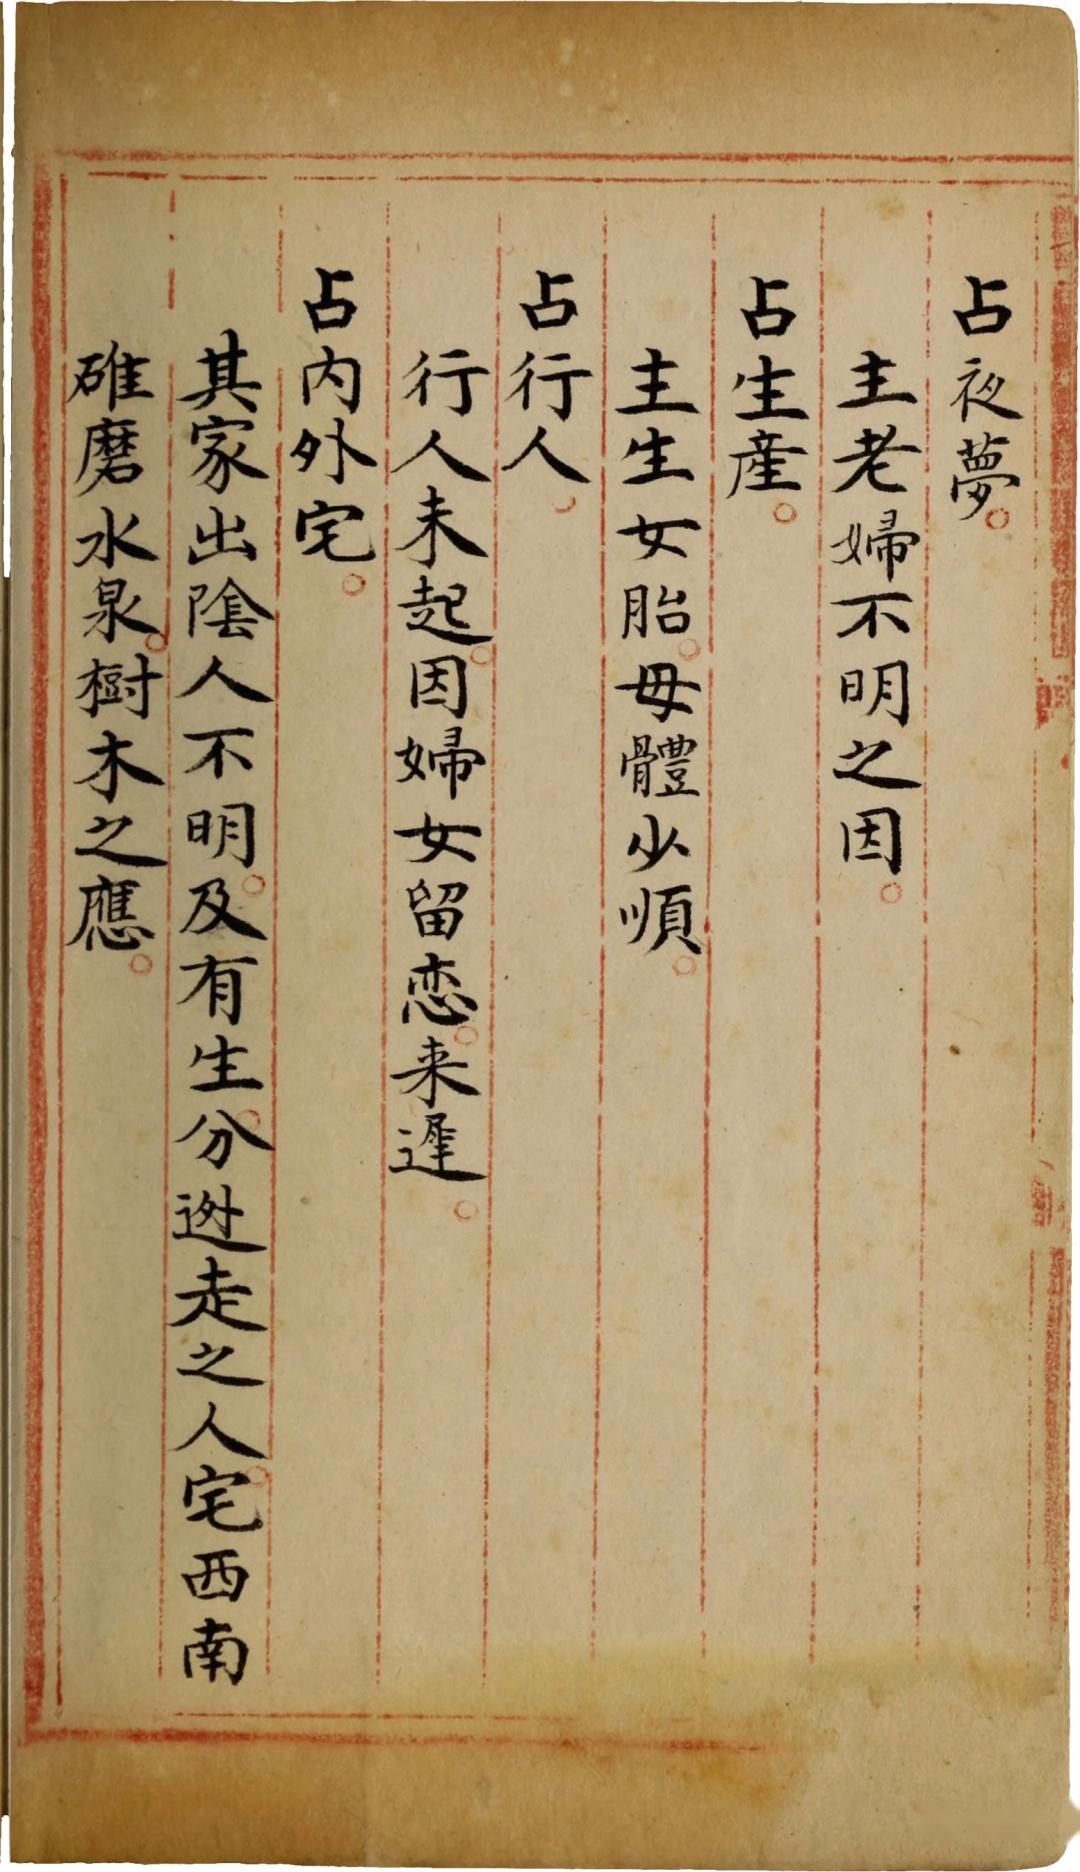 占夜夢。
主老婦不明之因。
占生産。
主生女胎。母體少順。
占行人。
行人未起。因婦女留恋。来遲。
占内外宅。
其家出陰人不明。及有生。分逃走之人。宅西南
碓磨水泉。樹木之應。